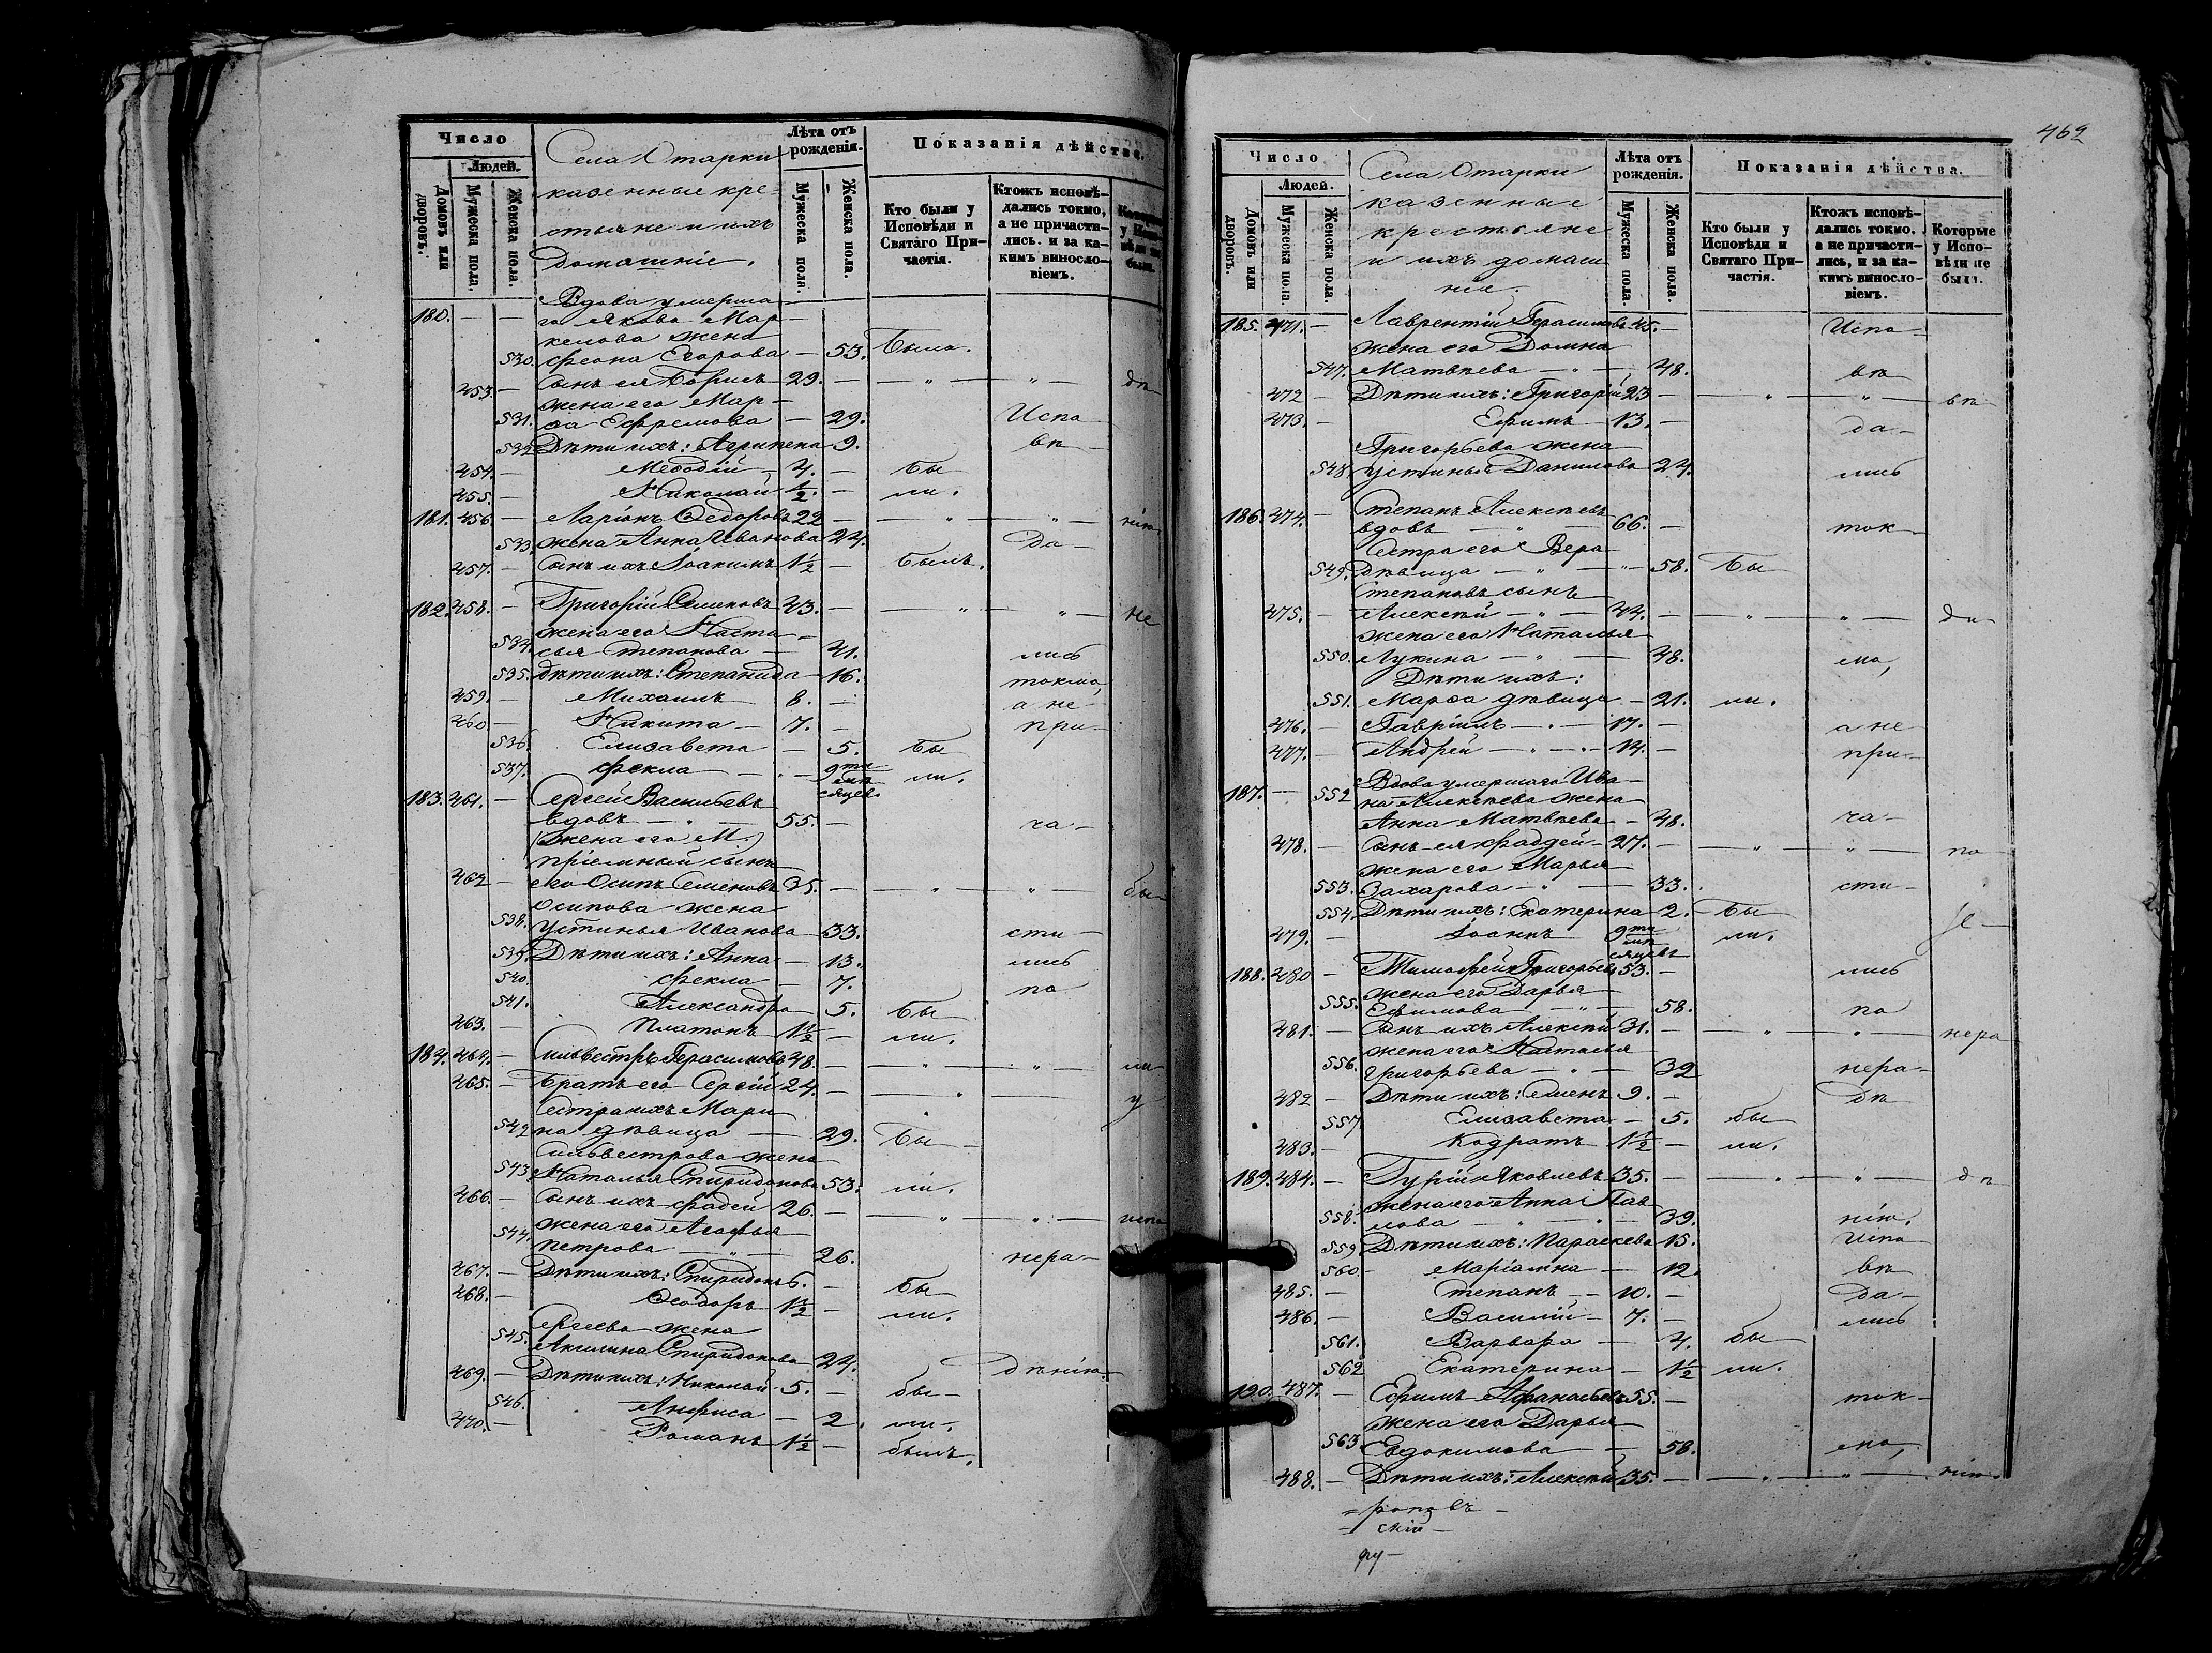 Число
Людей.
Домовъ или дворовъ.
Мужеска пола.
Женска пола.
Села Отарки
казенные кре-
стьяне и ихъ
домашніе.
Лѣта отъ рожденія.
Мужеска пола.
Женска пола.
Показанія дѣйства.
Кто были у Исповѣди и Святаго Причастія.
Ктожъ исповѣдались токмо, а не причастились. и за какимъ винословіемъ.
180. — — Вдова умерша-
го Якова Мар-
келова жена
530. Ѳеона Егорова — 53. Была.
453. — Сынъ ея Борисъ 29. — — „ — „ — дѣ
жена его Мар-
531. ѳа Ефремова — 29. Испо
532 Дѣти ихъ: Агрипена 9. вѣ
454. — Меѳодій — 4. — бы
455. — Николай ½. — ли.
181. 456. — Ларіонъ Ѳедоровъ 22 — — „ — „ — нію
533. жена Анна Иванова 24. Да-
457. — Сынъ ихъ Іоакимъ 1½ — былъ.
182. 458. — Григорій Семеновъ 43. — — „ — „ — не
жена его Наста-
534. сья Степанова — 41. лись
535. дѣти ихъ: Степанида — 16. токмо,
459. — Михаилъ 8. — а не
460 — Никита — 7. — при-
536. Елизавета — 5. бы
537. Ѳекла — „ — 9ти мѣсяцевъ ли.
183. 461. — Сергей Васильевъ
вдовъ — „ — 55. — ча-
(жена его М.)
пріемный сынъ
462 — его Осипъ Семеновъ 35. — — „ — „ — бы-
Осипова жена
538. Устинья Иванова — 33. сти-
539. Дѣти ихъ: Анна — 13. лись
540. Ѳекла — 7. по
541. Александра — 5. бы
463. — Платонъ 1½ — ли.
184. 464. — Сильвестръ Герасимовъ 48. — — „ — „ — ли
465. — Братъ его Сергій 24. — — „ — у
Сестра ихъ Мари
542 на дѣвица — 29. Бы-
Сильвестрова жена
543. Наталья Спиридонова 53. ли.
466. — Сынъ ихъ Фадей 26. — — „ — „ — испо
жена его Агафья
544. Петрова — „ — 26. нера-
467. — Дѣти ихъ: Спиридонъ 6. — бы
468. — Ѳеодоръ 1½ — ли.
Сергеева жена
545. Акилина Спиридонова 24. дѣнію.
469. — Дѣти ихъ: Николай 5. — бы-
546. Анфиса — 2. ли.
470. — Романъ 1½ — былъ.
462
Число
Людей.
Домовъ или дворовъ.
Мужеска пола.
Женска пола.
Села Отарки
казенные
крестьяне
и ихъ домаш
ніе.
Лѣта отъ рожденія.
Мужеска пола.
Женска пола.
Показанія дѣйства.
Кто были у Исповѣди и Святаго Причастія.
Ктожъ исповѣдались токмо, а не причастились, и за какимъ винословіемъ.
Которые у Исповѣди не были.
185. 471. — Лаврентій Герасимовъ 45. — Испо-
жена его Домна
547. Матвѣева — „ — 48. вѣ
472 — Дѣти ихъ: Григорій 23 — — „ — „ — вѣ
473. — Ефимъ 13. — да-
Григорьева жена
548. Устинья Данилова 24. лись
186. 474. — Степанъ Алексѣевъ
вдовъ — „ — 66. — ток-
Сестра его Вера
549. дѣвица — „ — 58. Бы
Степановъ сынъ
475. — Алексѣй — „ — 44. — — „ — „ — ди-
жена его Наталья
550. Лукина — „ — 48. мо,
Дѣти ихъ:
551. Марѳа дѣвица — 21. ли.
476. — Гавріилъ — „ — 17. — а не
477. — Андрей — „ — 14. — при-
187. — 552 Вдова умершаго Ива-
на Алексѣева жена
Анна Матвѣева — 48. ча-
478. — Сынъ ея Фаддей — 27. — — „ — „ — по
жена его Марья
553. Захарова — „ — 33. сти-
554. Дѣти ихъ: Екатерина — 2. бы
479. — Іоаннъ 9ти мѣсяцевъ ли.
188. 480 — Тимофей Григорьевъ 53. — лись
жена его Дарья
555. Ефимова — „ — 58. по
481. — Сынъ ихъ Алексѣй 31. — — „ — „ — нера
жена его Настасья
556. Григорьева — „ — 32 нера-
482 — Дѣти ихъ: Семенъ 9. — дѣ
557 Елизавета — 5. бы
483. — Кодратъ 1½ — ли.
189. 484. — Гурій Яковлевъ 35. — — „ — „ — дѣ
жена его Анна Пав
558. лова — „ — 39. нію.
559. Дѣти ихъ: Параскева 15. Испо
560. Маріамна — 12. вѣ
485. — Степанъ — 10. — Да-
486. — Василій — 7. — лись
561. Варвара — 4. бы
562 Екатерина — 1½ ли.
190. 487. — Ефимъ Афанасьевъ 55. — ток-
жена его Дарья
563. Евдокимова — 58. мо,
488. — Дѣти ихъ: Алексѣй 35. — — „ — „ — нію.